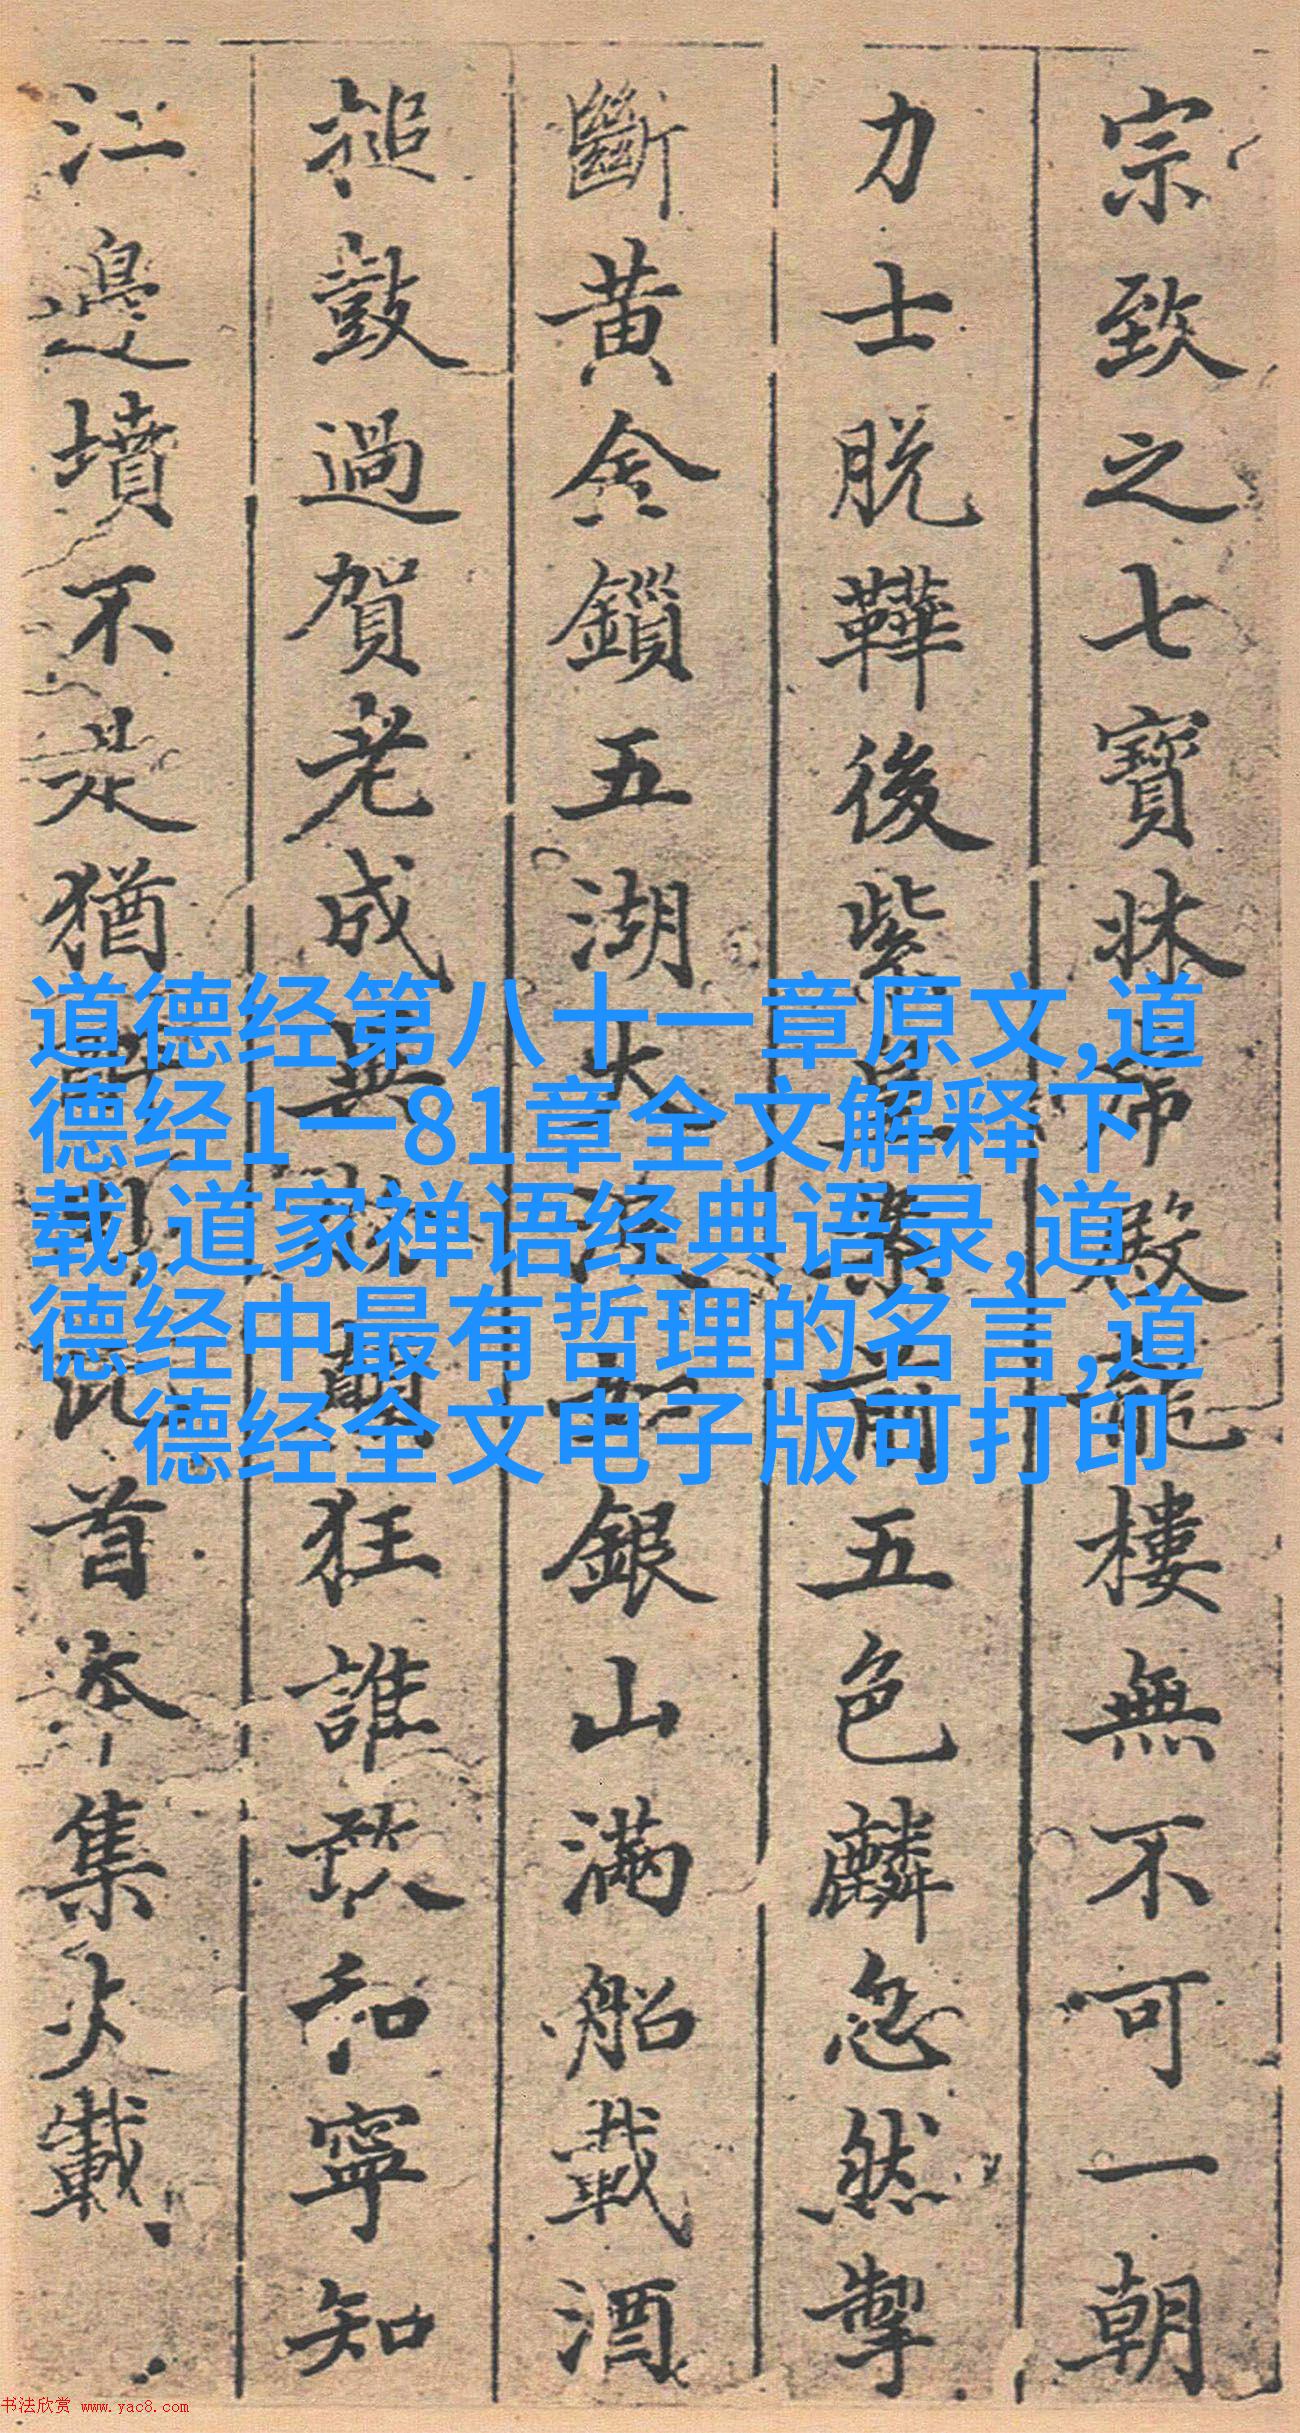 宗致之七寶牀殿龍樓無不可一朝
力士脱鞾後紫皇案前五色麟忽然掣
斷黃金鎖五湖大浪如銀山滿船載酒
搥鼓過賀老成異物顛狂誰敢和寧知
江邊墳不是猶醉此首本集失載
道德经第八十一章原文,道
德经1一81章全文解释下
载,道家禅语经典语录,道
德经中最有哲理的名言,道
德经全文电子版可打印
书法欣赏 www.yac8.com